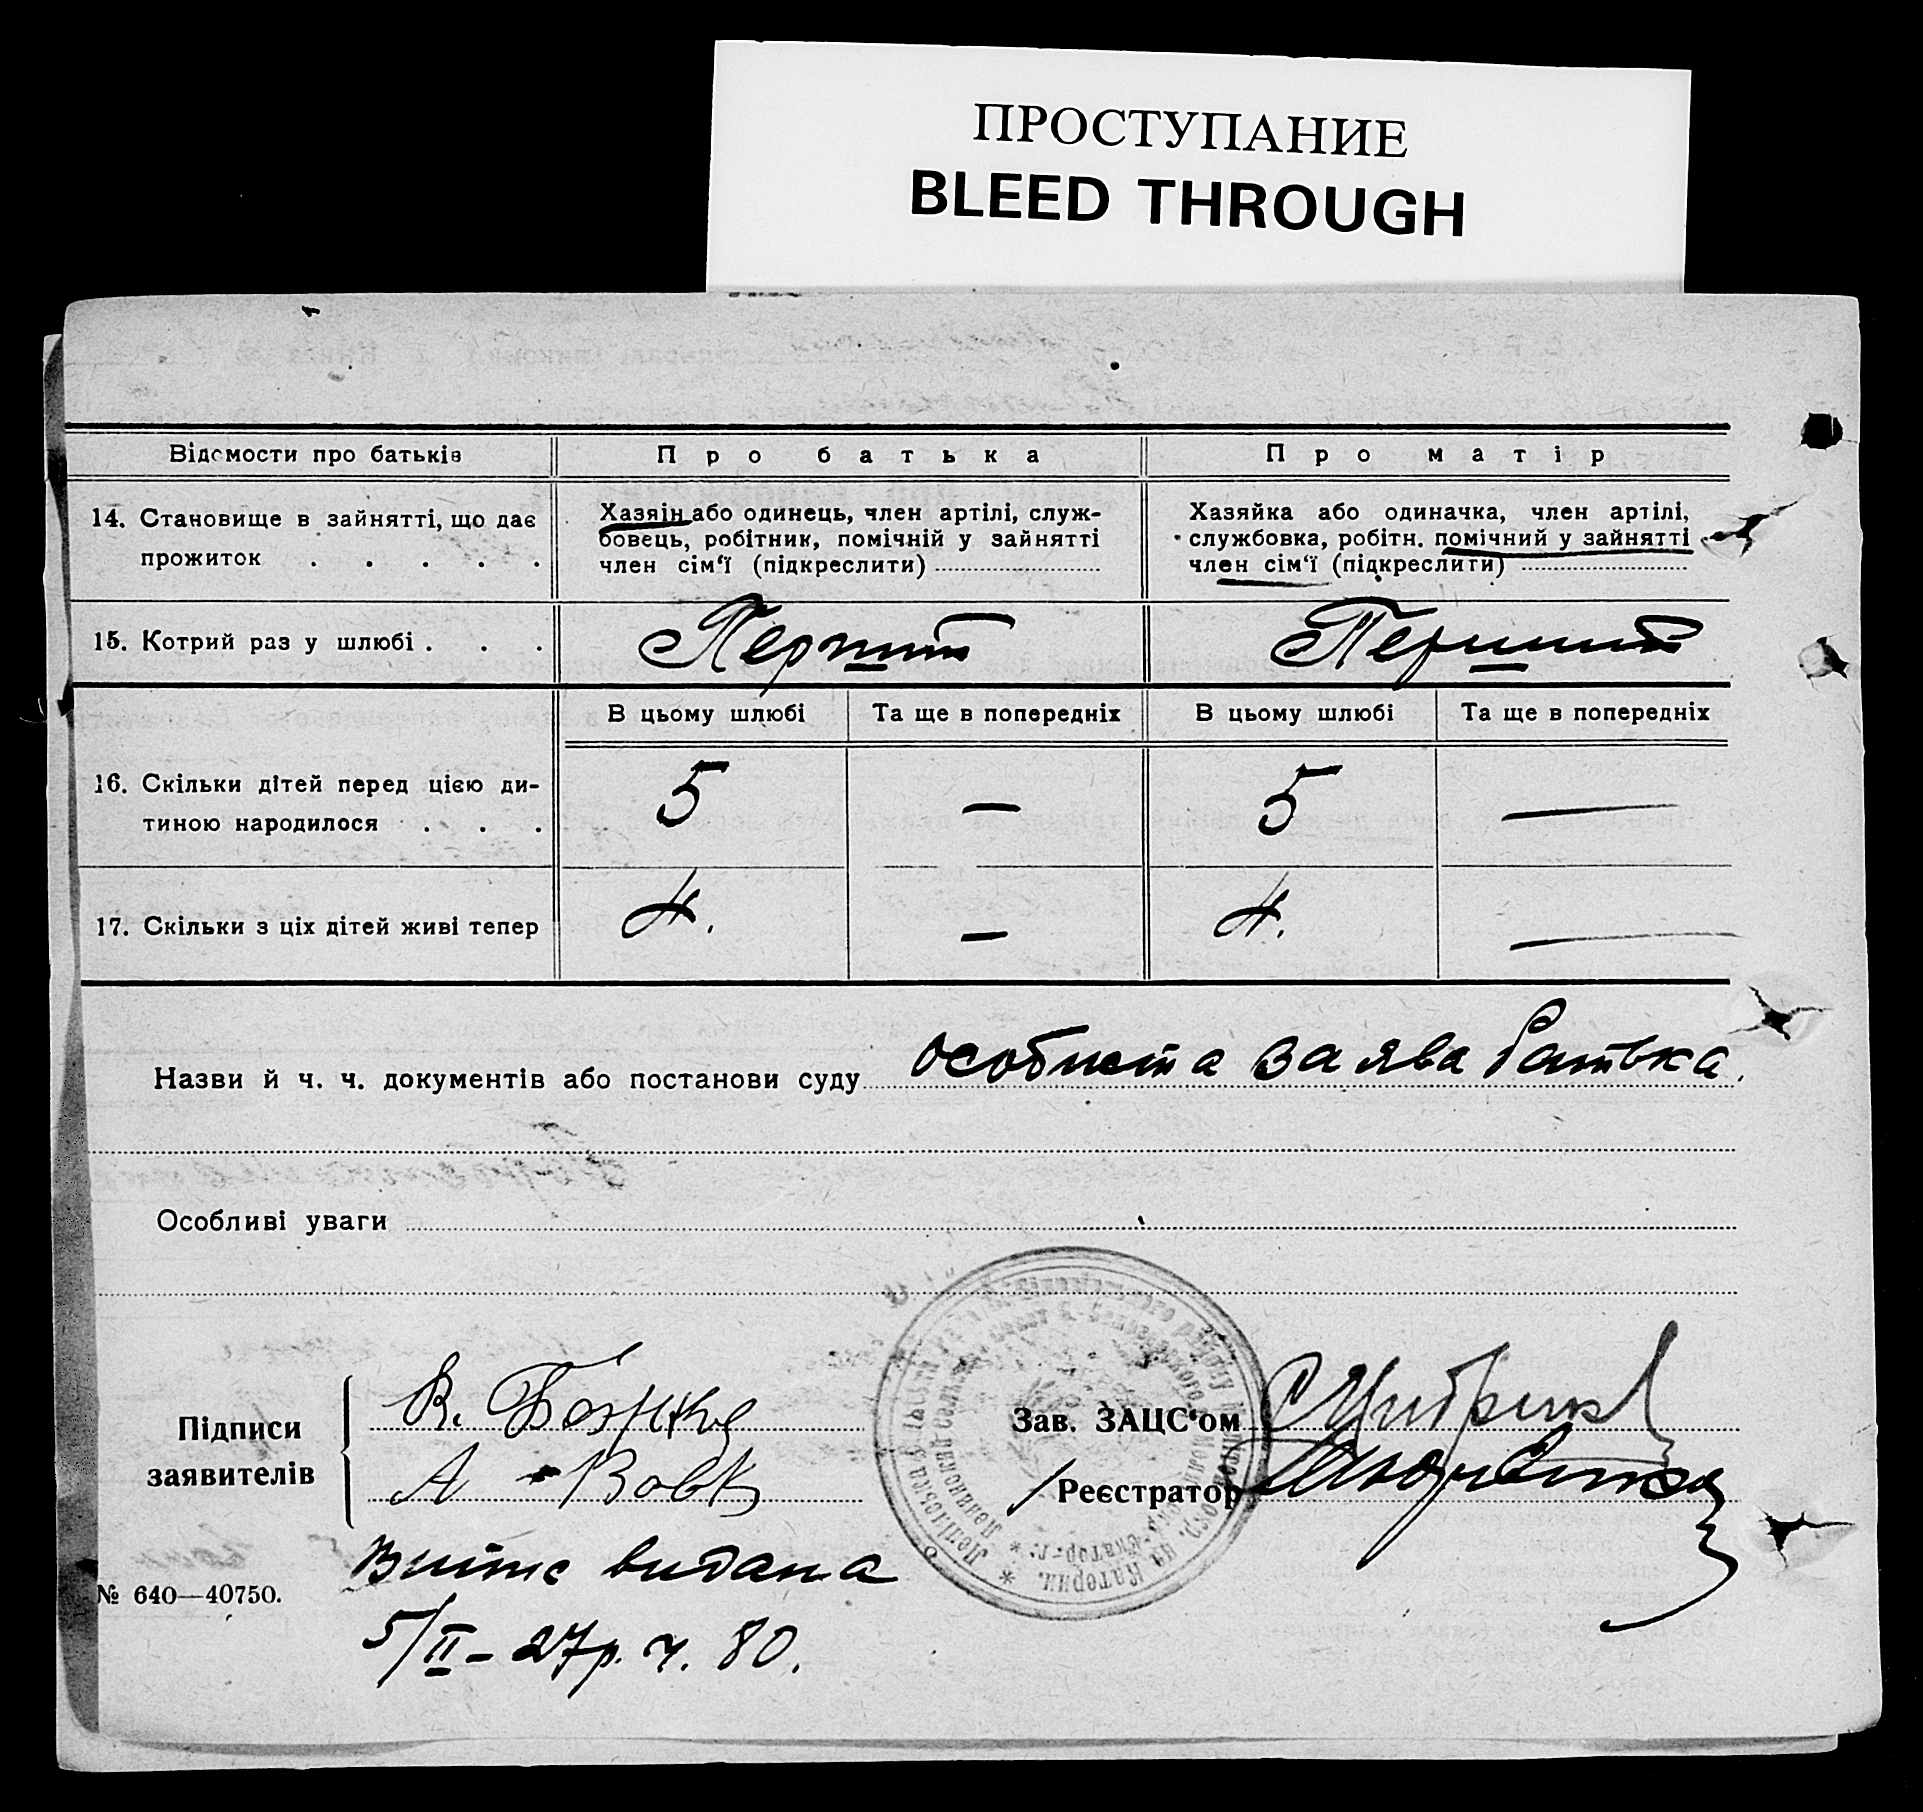 ПРОСТУПАНИЕ
BLEED THROUGH
Відомости про батьків
Про батька
Про матір
14. Становище в зайнятті, що дає
прожиток . . . . .
Хазяїн або одинець, член артілі, служ-
бовець, робітник, помічній у зайнятті
член сім‘ї (підкреслити)
Хазяйка або одиначка, член артілі,
службовка, робітн. помічний у зайнятті
член сім‘ї (підкреслити)
15. Котрий раз у шлюбі . . .
Перший
Перший
В цьому шлюбі
Та ще в попередніх
В цьому шлюбі
Та ще в попередніх
16. Скільки дітей перед цією ди-
тиною народилося . . .
5 — 5 —
17. Скільки з ціх дітей живі тепер
4. — 4. —
Назви й ч. ч. документів або постанови суду особиста заява батька.
Особливі уваги
Підписи
заявителів
В.
А Вовк
Зав. ЗАЦС‘ом
/Реєстратор
видана
№ 640—40750.
5/II – 27р. ч. 80.